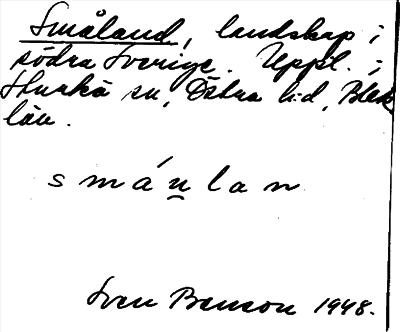 Småland, landskap i
södra Sverige. Uppt. i
Sturkö sn, Östra hd, Blek
län.
smáu̯lan
Sven Benson 1948.